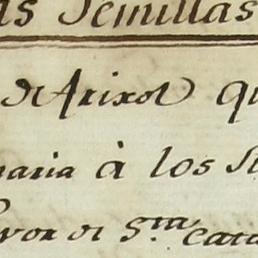 as Semillas
de Arixol qu
naria à los S
vor de S.ta Cata